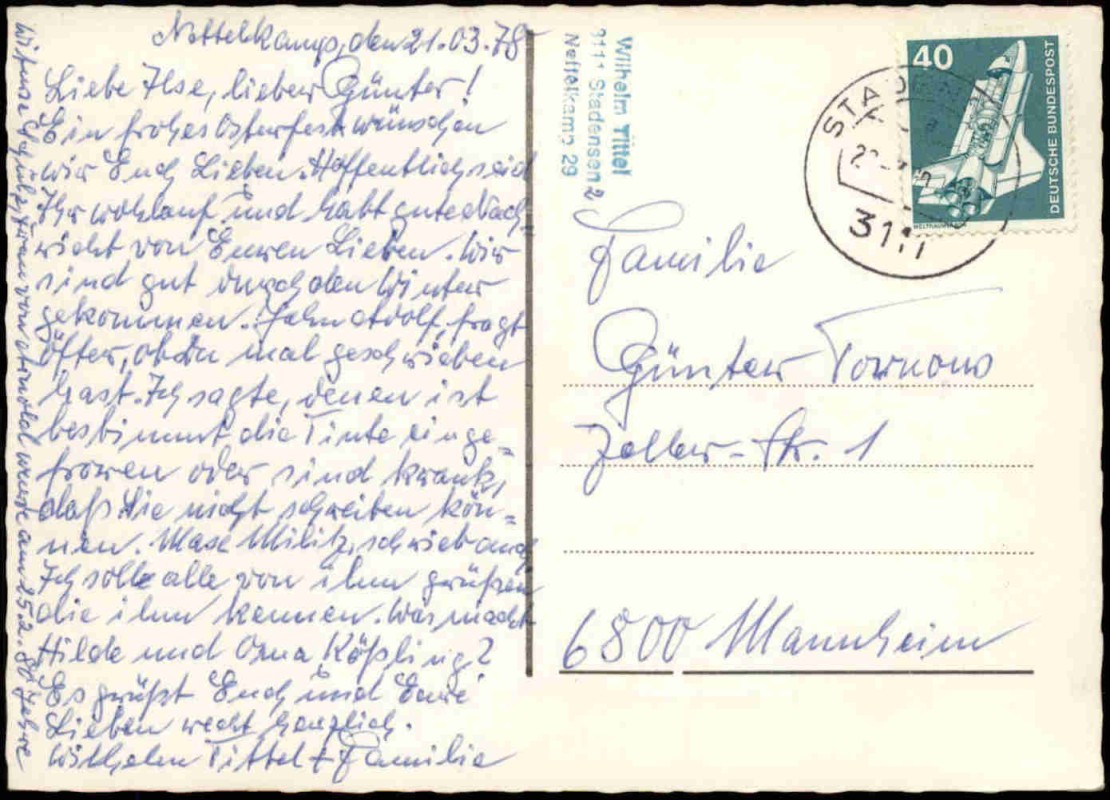 Nettelkamp, den 21.03.78
Liebe Ilse, lieber Günter!
Ein frohes Osterfest wünschen
wir Euch Lieben. Hoffentlich seid
Ihr wohlauf und habt gute Nach-
richt von Euren Lieben. Wir
sind gut durch den Winter
gekommen. Jahn Adolf fragt
öfter, ob Du mal geschrieben
hast. Ich sagte, denen ist
bestimmt die Tinte einge=
froren oder sind krank,
daß sie nicht schreiben kön=
nen. Max Militz, schrieb auch
Ich solle alle von ihm grüßen
die ihm kennen. Was macht
Hilde und Oma Kößling?
Es grüßt Euch und Eure
Lieben recht herzlich.
Wilhelm Tittel + Familie
Witwe Schulz, Frau von Arnold wurde am 25.2. 80 Jahre
Wilhelm Tittel
3111 Stadensen 2
Nettelkamp 29
40
DEUTSCHE BUNDESPOST
STADENSEN
3111
Familie
Günter Tornow
Zeller-Str. 1
6800 Mannheim